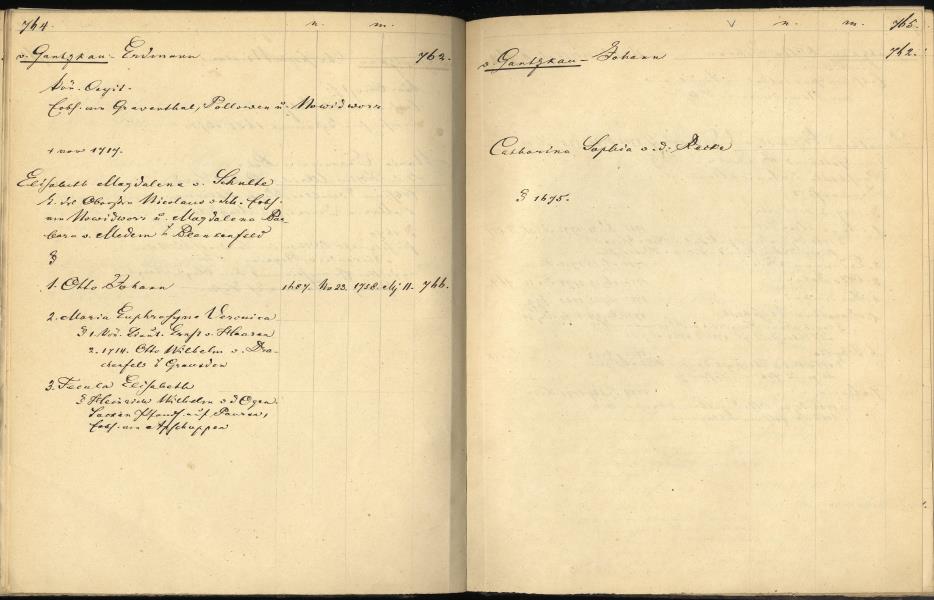 764. n. m.
v. Gantzkau - Erdmann 762.
Kön. Capit.
Erbh. von Graventhal, Pollowen u. Nowidworz
† vor 1717.
Elisabeth Magdalena v. Schulte
T. des Obersten Nicolaus v. Sch. Erbh.
von Nowidworz u. Magdalena Bar-
bara v. Medem
1. Otto Johann 1687. No 23. 1758. Mj 11. 766.
2. Maria Euphrosyne Veronica
1. Kön. Lieut. Ernst v. Haaren
2. 1714. Otto Wilhelm v. Dra-
chenfels
3. Tecula Elisabeth
Heinrich Wilhelm v. d. Ogen
Sacken
Erbh. von Apschuppen
n. m. 765.
v. Gantzkau - Johann 762.
Catharina Sophia v. d. Recke
1695.